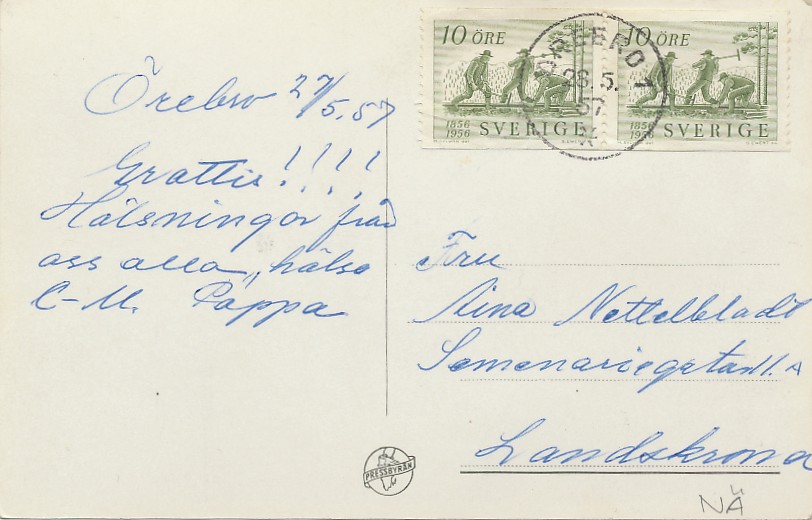 Örebro 27/5.57
Grattis!!!!
Hälsningar från
oss alla, hälsa
C-M. Pappa
10 ÖRE
1856
1956
SVERIGE
10 ÖRE
1856
1956
SVERIGE
ÖREBRO 1
28.5.
57
Fru
Aina Nettelbladt
Semenariegatan 11. A
Landskrona
PRESSBYRÅN
NÄ